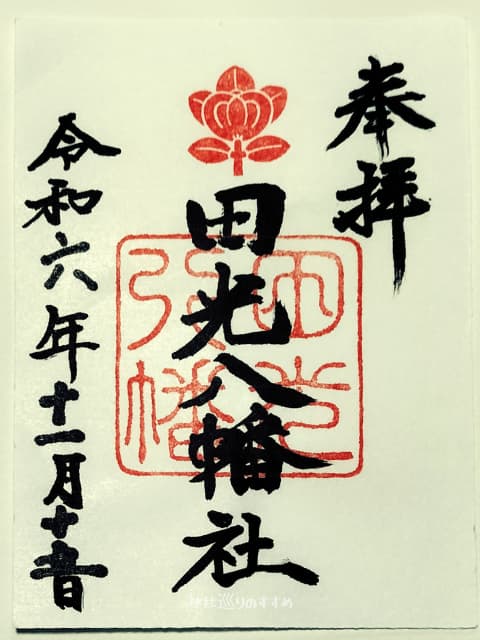 奉拝
田光八幡社
令和六年十一月十五日
神社巡りのすすめ